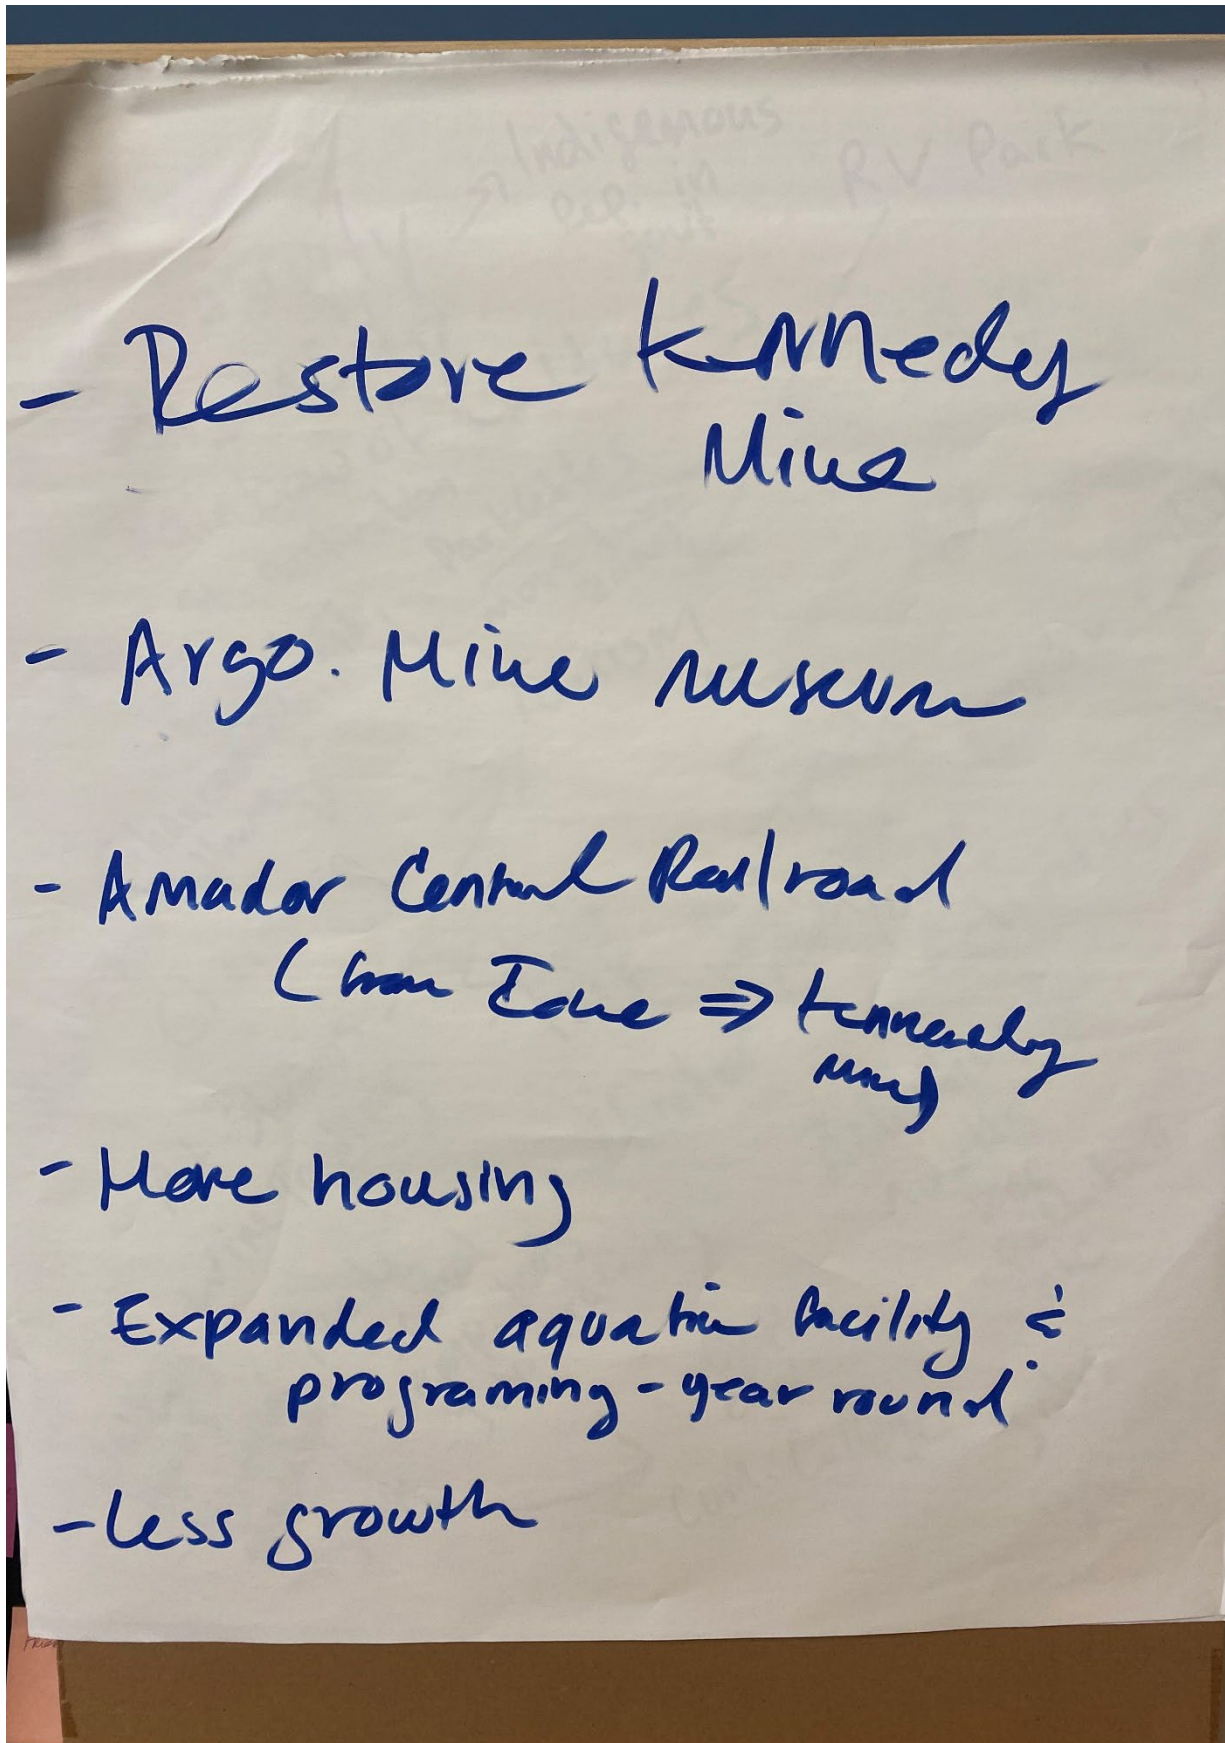 Indigenous
in
RV Park
- Restore Kennedy
Mine
- Argo. Mine museum
- Amador Central Railroad
(from Ione ⇒ Kennedy
mine)
- More housing
- Expanded aquatic facility &
programing - year round
- less growth